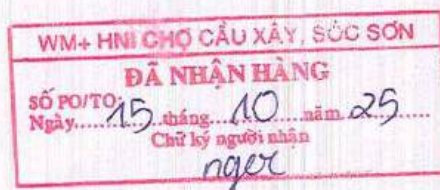 WM+ HNI CHỢ CẦU XÂY, SÓC SƠN
ĐÃ NHẬN HÀNG
SỐ PO/TO:
Ngày.....15.tháng....10....năm.25......
Chữ ký người nhận